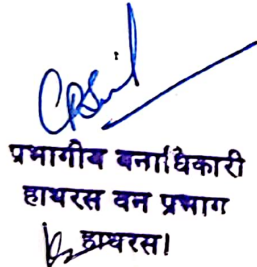 प्रभागीय वनाधिकारी
हाथरस वन प्रभाग
हाथरस।